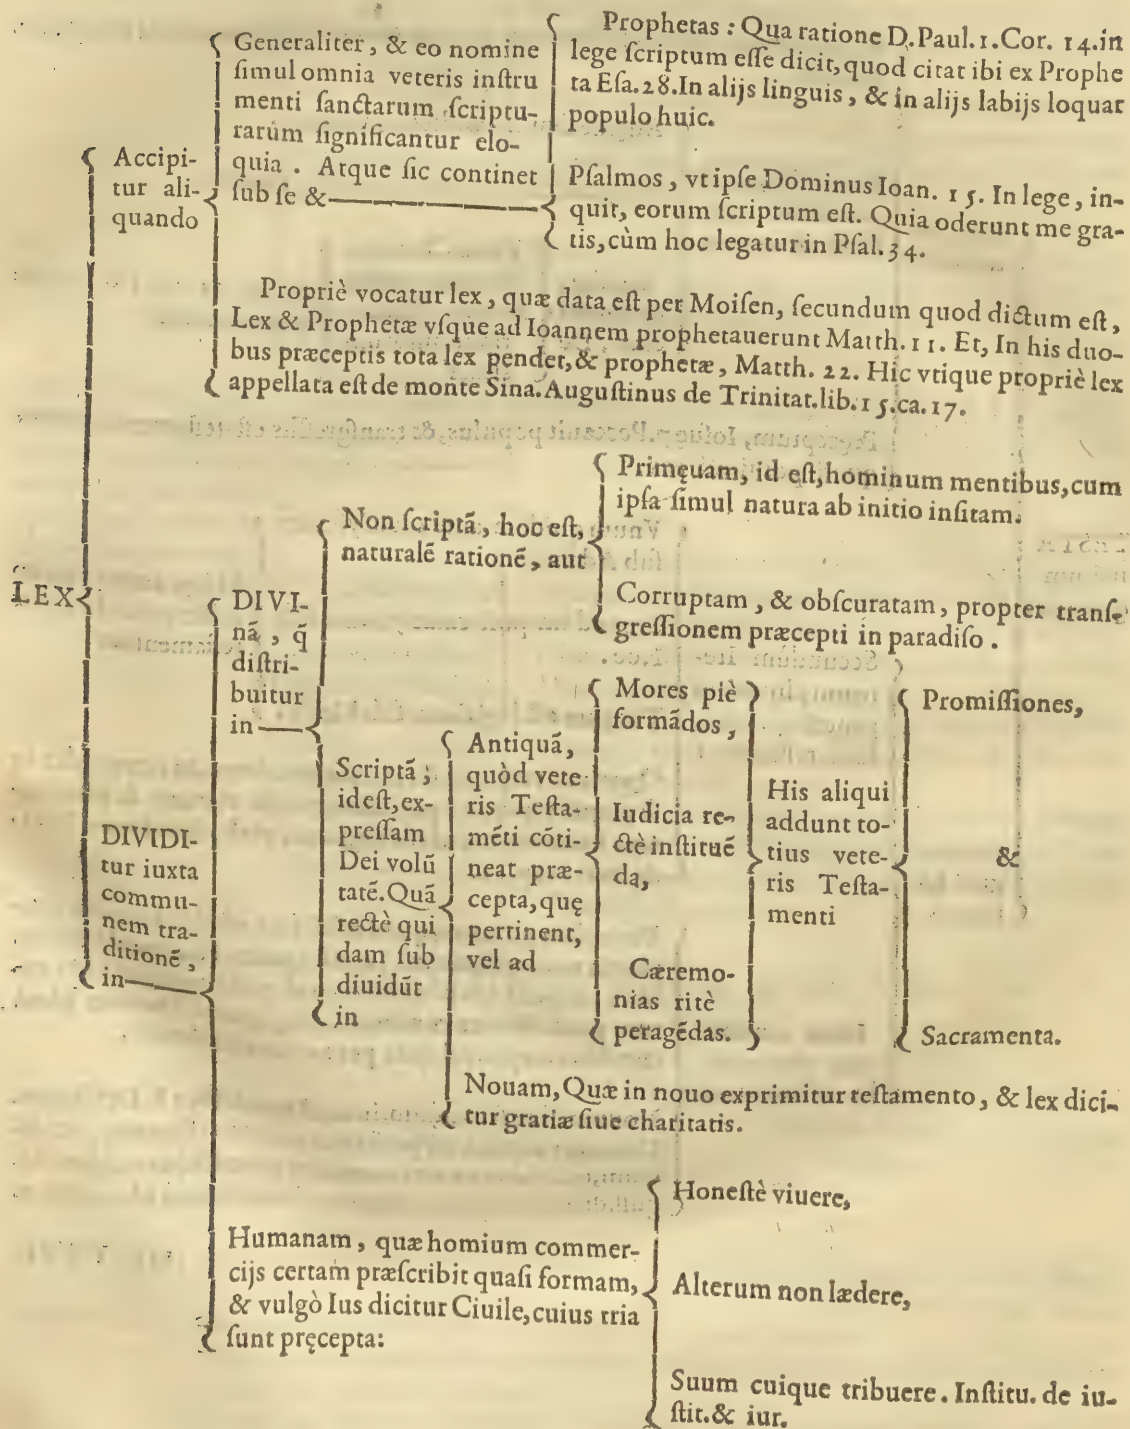 LEX
Accipi-
tur ali-
quando
Generaliter, & eo nomine
ſimul omnia veteris inſtru
menti ſanctarum ſcriptu-
rarum ſignificantur elo-
quia. Atque ſic continet
ſub ſe &
Prophetas: Qua ratione D. Paul. 1. Cor. 14. in
lege ſcriptum eſſe dicit, quod citat ibi ex Prophe
ta Eſa. 28. In alijs linguis, & in alijs labijs loquar
populo huic.
Pſalmos, vt ipſe Dominus Ioan. 15. In lege, in-
quit, eorum ſcriptum eſt. Quia oderunt me gra-
tis, cùm hoc legatur in Pſal. 34.
Propriè vocatur lex, quæ data eſt per Moiſen, ſecundum quod dictum eſt,
Lex & Prophetæ vſque ad Ioannem prophetauerunt Matth. 11. Et, In his duo-
bus præceptis tota lex pendet, & prophetæ, Matth. 22. Hic vtique propriè lex
appellata eſt de monte Sina. Auguſtinus de Trinitat. lib. 15. ca. 17.
DIVIDI-
tur iuxta
commu-
nem tra-
ditionē,
in
DIVI-
nā, q̄
diſtri-
buitur
in
Non ſcriptā, hoc eſt,
naturalē rationē, aut
Primęuam, id eſt, hominum mentibus, cum
ipſa ſimul natura ab initio inſitam.
Corruptam, & obſcuratam, propter tranſ-
greſſionem præcepti in paradiſo.
Scriptā,
id eſt, ex-
preſſam
Dei volū
tatē. Quā
rectè qui
dam ſub
diuidūt
in
Antiquā,
quòd vete
ris Teſta-
mēti cōti-
neat præ-
cepta, quę
pertinent,
vel ad
Mores piè
formādos,
Iudicia re-
ctè inſtituē
da,
Cæremo-
nias ritè
peragēdas.
His aliqui
addunt to-
tius vete-
ris Teſta-
menti
Promiſſiones,
&
Sacramenta.
Nouam, Quæ in nouo exprimitur teſtamento, & lex dici-
tur gratiæ ſiue charitatis.
Humanam, quæ homium commer-
cijs certam præſcribit quaſi formam,
& vulgò Ius dicitur Ciuile, cuius rria
ſunt pręcepta:
Honeſtè viuere,
Alterum non lædere,
Suum cuique tribuere. Inſtitu. de iu-
ſtit. & iur.